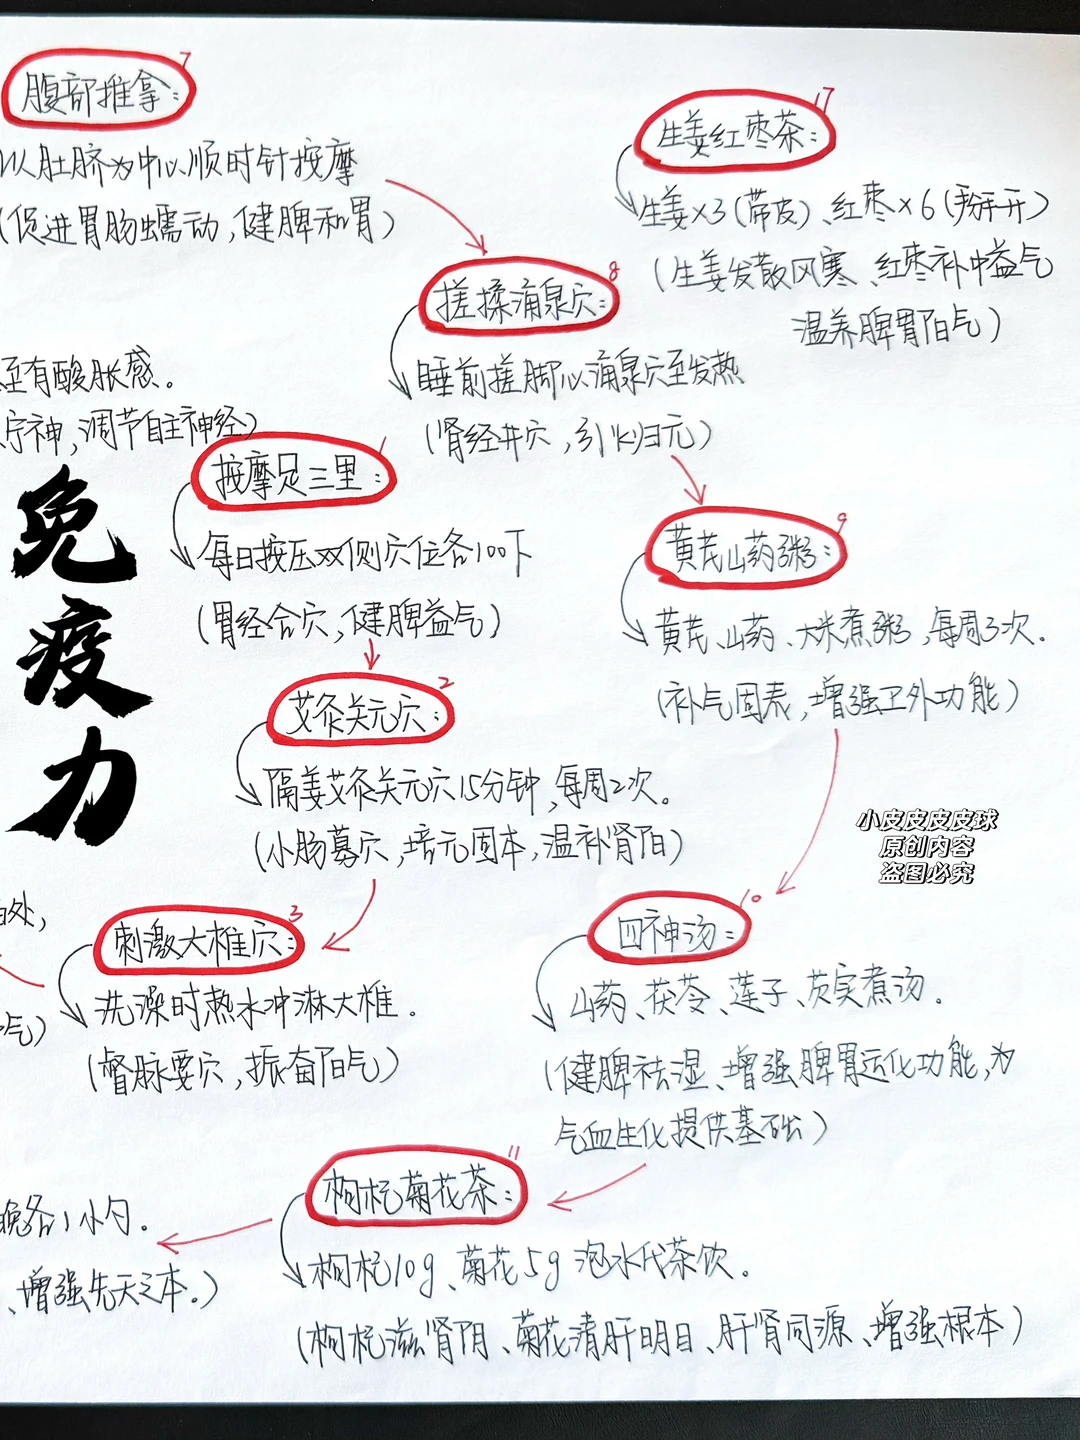 腹部推拿：
7
以肚脐为中心顺时针按摩
(促进胃肠蠕动,健脾和胃)
生姜红枣茶：
17
生姜×3(带皮)、红枣×6(掰开)
(生姜发散风寒、红枣补中益气
温养脾胃阳气)
搓揉涌泉穴：
8
睡前搓脚心涌泉穴至发热
(肾经井穴,引火归元)
至有酸胀感。
宁神,调节自主神经)
按摩足三里：
1
每日按压双侧穴位各100下
(胃经合穴,健脾益气)
免疫力
黄芪山药粥：
9
黄芪、山药、大米煮粥,每周3次.
(补气固表,增强卫外功能)
艾灸关元穴：
2
隔姜艾灸关元穴15分钟,每周2次。
(小肠募穴,培元固本,温补肾阳)
小皮皮皮皮球
原创内容
盗图必究
四神汤：
10
山药、茯苓、莲子、芡实煮汤.
(健脾祛湿、增强脾胃运化功能,为
气血生化提供基础)
处,
气)
刺激大椎穴：
3
洗澡时热水冲淋大椎.
(督脉要穴,振奋阳气)
枸杞菊花茶：
11
枸杞10g、菊花5g泡水代茶饮.
(枸杞滋肾阴、菊花清肝明目、肝肾同源、增强根本)
晚各1小勺.
、增强先天之本。)